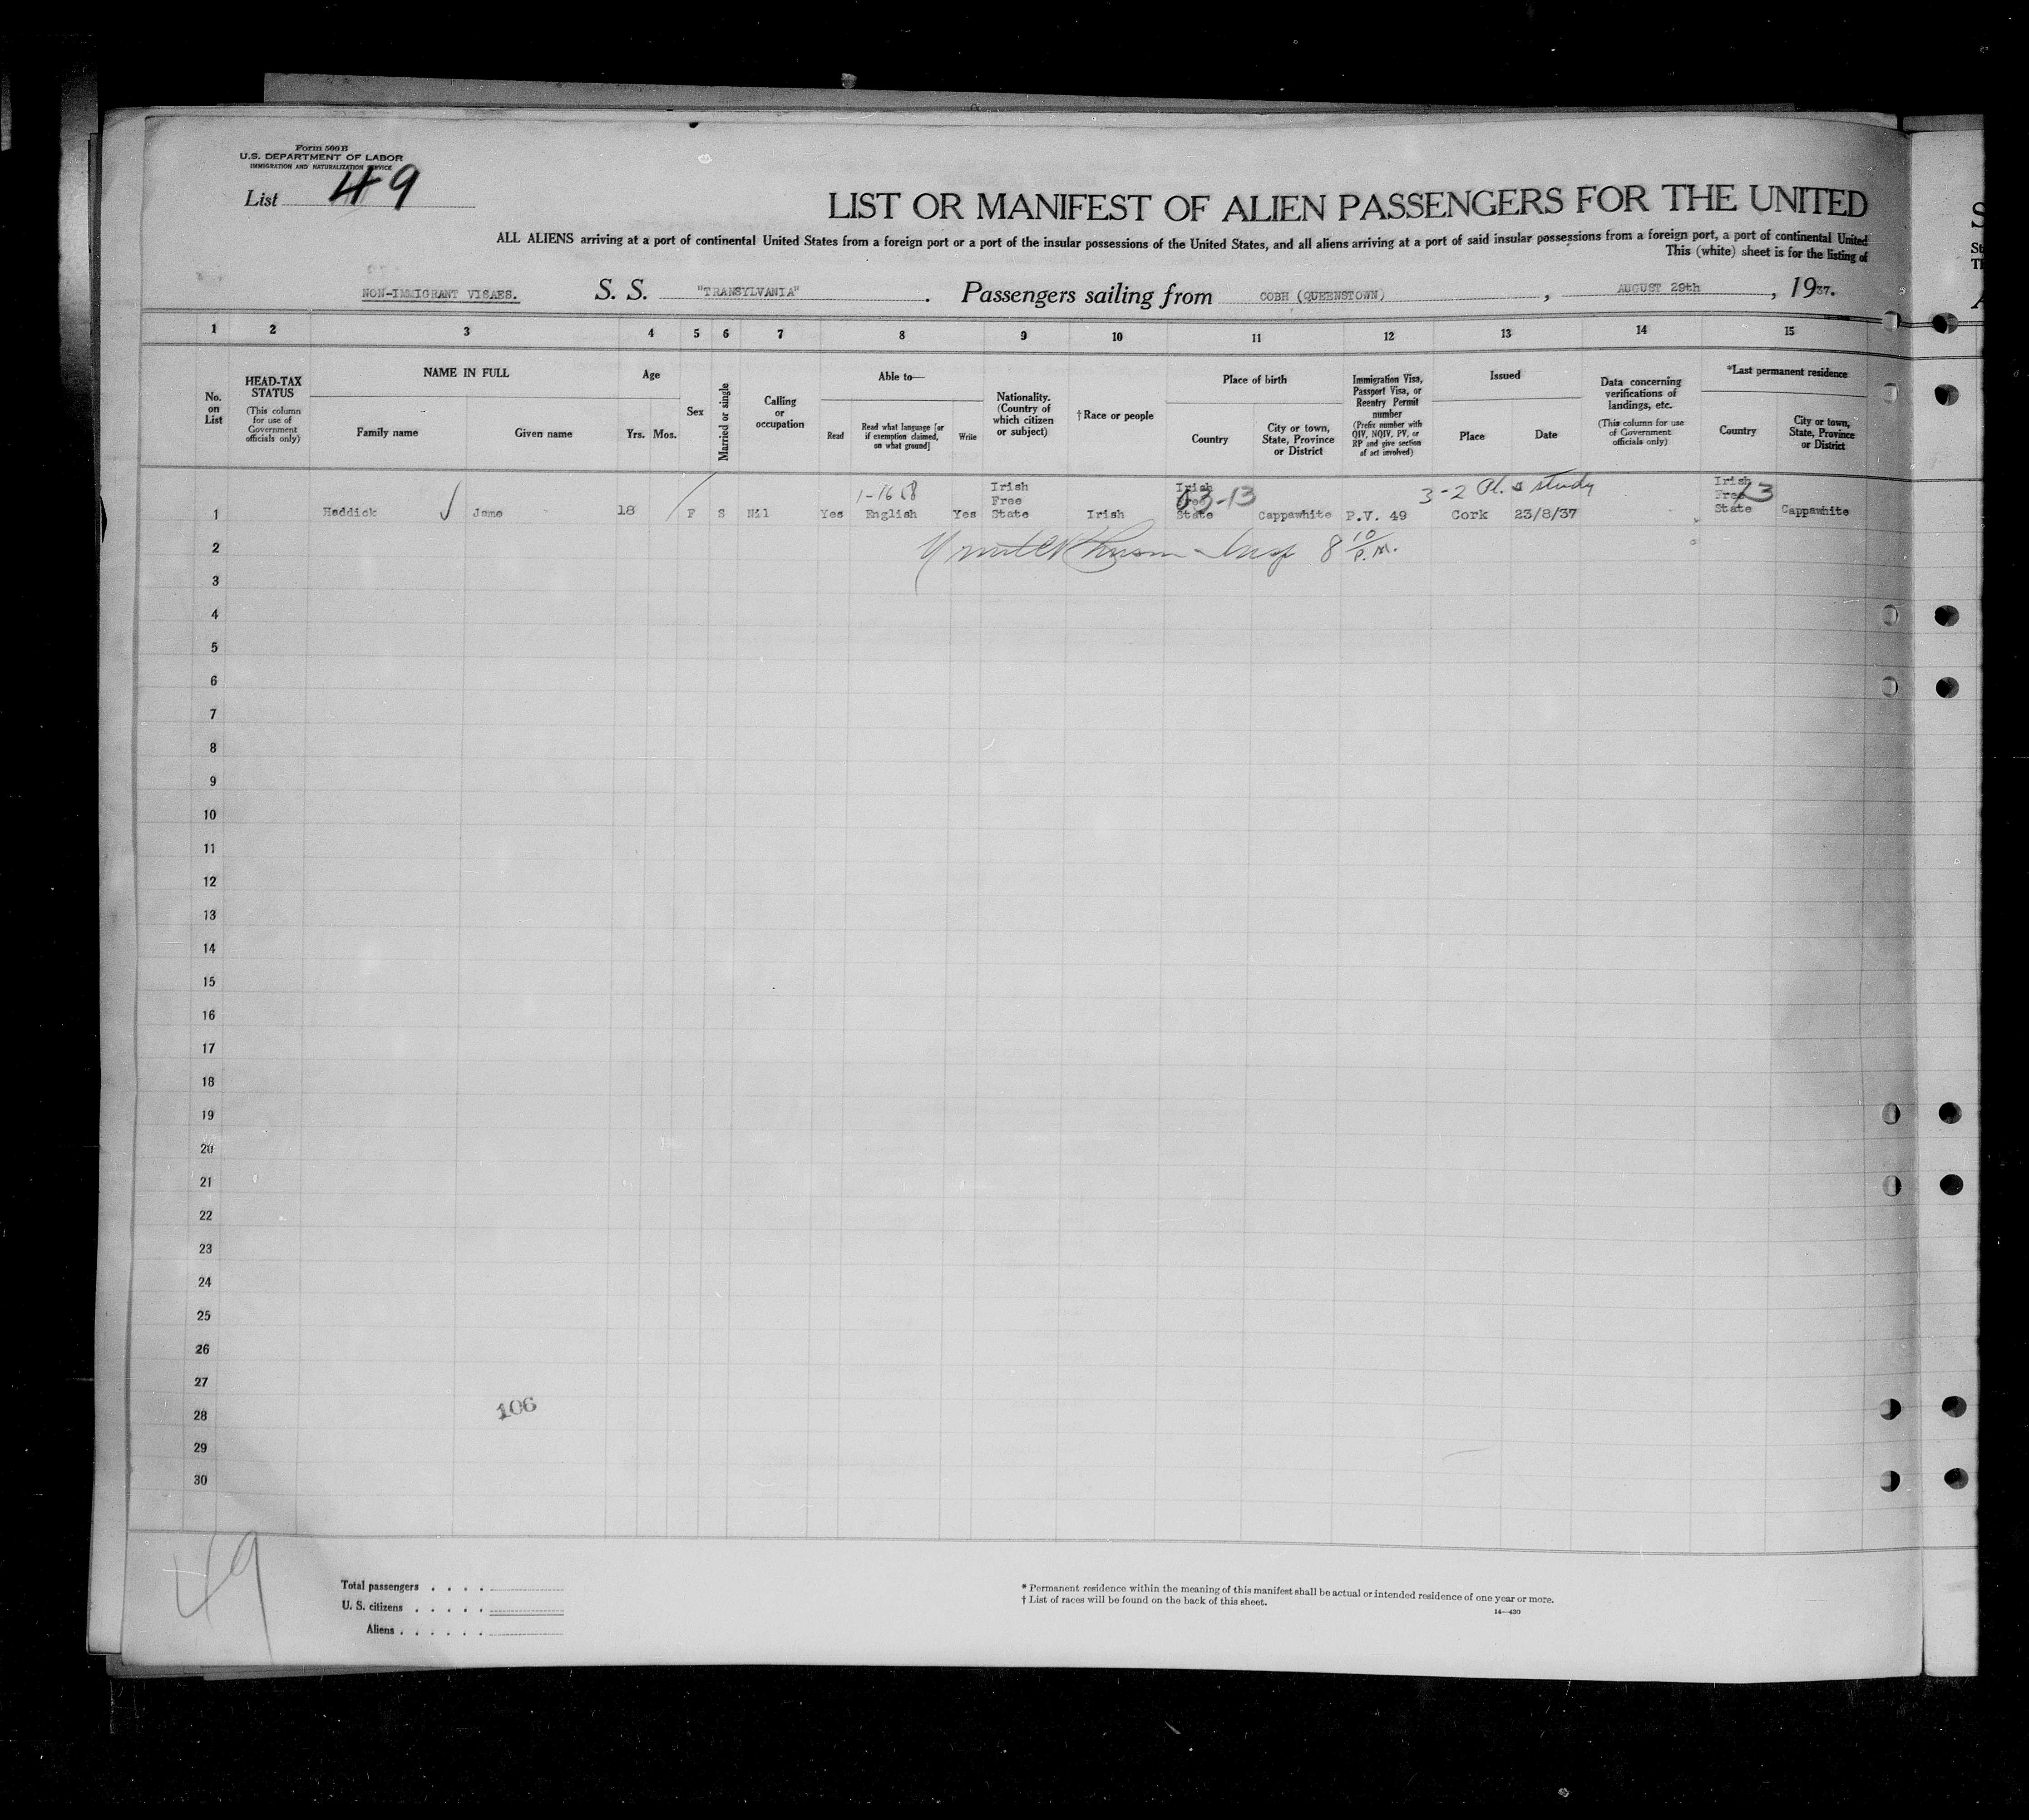 Form 500 B
U.S. DEPARTMENT OF LABOR
IMMIGRATION AND NATURALIZATION SERVICE
List 49
LIST OR MANIFEST OF ALIEN PASSENGERS FOR THE UNITED
ALL ALIENS arriving at a port of continental United States from a foreign port or a port of the insular possessions of the United States, and all aliens arriving at a port of said insular possessions from a foreign port, a port of continental United
This (white) sheet is for the listing of
NON-IMMIGRANT VISAES. S. S. "TRANSYLVANIA". Passengers sailing from COBH (QUEENSTOWN), AUGUST 29th, 1937.
1 2 3 4 5 6 7 8 9 10 11 12 13 14 15
No. on List
HEAD-TAX STATUS
(This column for use of Government officials only)
NAME IN FULL
Family name Given name
Age
Yrs. Mos.
Sex
Married or single
Calling or occupation
Able to—
Read
Read what language [or if exemption claimed, on what ground]
Write
Nationality. (Country of which citizen or subject)
†Race or people
Place of birth
Country
City or town, State, Province or District
Immigration Visa, Passport Visa, or Reentry Permit number
(Prefix number with QIV, NQIV, PV, or RP and give section of act involved)
Issued
Place Date
Data concerning verifications of landings, etc.
(This column for use of Government officials only)
*Last permanent residence
Country
City or town, State, Province or District
3-2 Pl. & study
1 Haddick Jane 18 F S Nil Yes English Yes Irish Free State Irish Irish Free State Cappawhite P.V. 49 Cork 23/8/37 Irish Free State Cappawhite
2 8 10 P.M.
3
4
5
6
7
8
9
10
11
12
13
14
15
16
17
18
19
20
21
22
23
24
25
26
27
28 106
29
30
49
Total passengers . . . .
U. S. citizens . . . . .
Aliens . . . . . .
* Permanent residence within the meaning of this manifest shall be actual or intended residence of one year or more.
† List of races will be found on the back of this sheet.
14—430